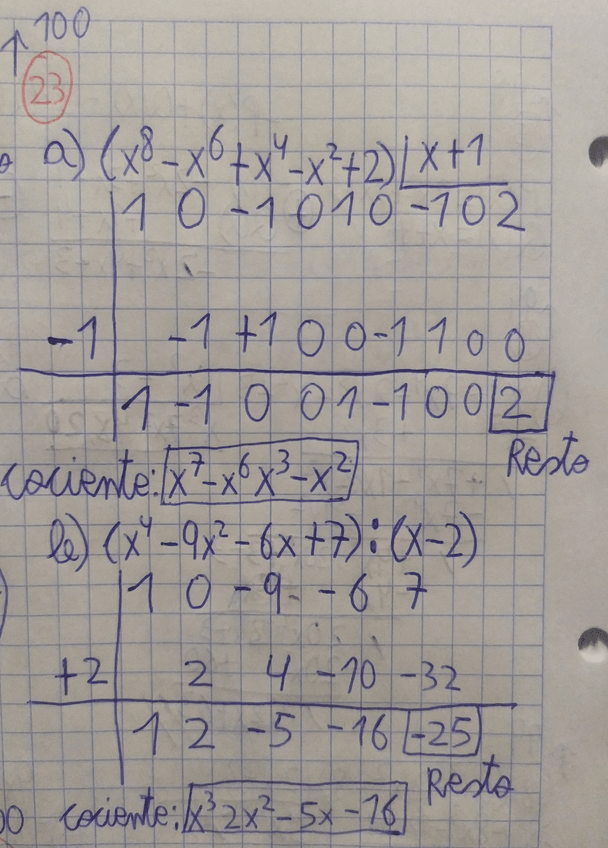 ↑100
23
a) (x⁸-x⁶+x⁴-x²+2) | x+1
1 0 -1 0 1 0 -1 0 2
-1 -1 +1 0 0 -1 1 0 0
1 -1 0 0 1 -1 0 0 2
Resto
cociente: x⁷-x⁶x³-x²
b) (x⁴-9x²-6x+7):(x-2)
1 0 -9 -6 7
+2 2 4 -10 -32
1 2 -5 -16 -25
Resto
cociente: x³2x²-5x-16